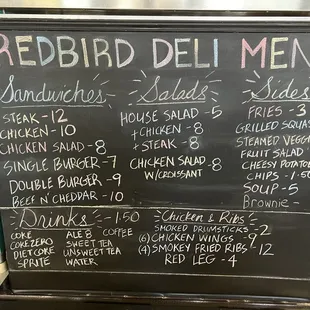 REDBIRD DELI MEN
Sandwiches
STEAK - 12
CHICKEN - 10
CHICKEN SALAD - 8
SINGLE BURGER - 7
DOUBLE BURGER - 9
BEEF N' CHEDDAR - 10
Salads
HOUSE SALAD - 5
+ CHICKEN - 8
+ STEAK - 8
CHICKEN SALAD - 8
W/CROISSANT
Sides
FRIES - 3
GRILLED SQUAS
STEAMED VEGGI
FRUIT SALAD
CHEESY POTATO
CHIPS - 1.50
SOUP - 5
Brownie -
Drinks - 1.50
COKE
COKE ZERO
DIET COKE
SPRITE
ALE 8
SWEET TEA
UNSWEET TEA
WATER
COFFEE
Chicken & Ribs
SMOKED DRUMSTICKS - 2
(6) CHICKEN WINGS - 9
(4) SMOKEY FRIED RIBS - 12
RED LEG - 4